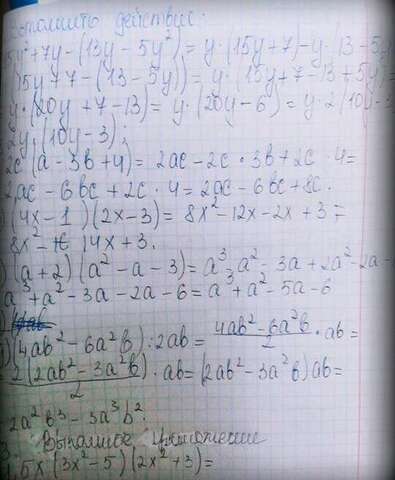 Выполнить действие:
15y² + 7y - (13y - 5y²) = y · (15y + 7) - y · (13 - 5y)
(15y + 7 - (13 - 5y)) = y · (15y + 7 - 13 + 5y) =
y · (20y + 7 - 13) = y · (20y - 6) = y · 2 (10y - 3)
2y (10y - 3);
2c (a - 3b + 4) = 2ac - 2c · 3b + 2c · 4 =
2ac - 6bc + 2c · 4 = 2ac - 6bc + 8c.
) (4x - 1) (2x - 3) = 8x² - 12x - 2x + 3 =
8x² - 14x + 3.
) (a + 2) (a² - a - 3) = a³ - a² - 3a + 2a² - 2a -
a³ + a² - 3a - 2a - 6 = a³ + a² - 5a - 6
) (4ab² - 6a²b) : 2ab = 4ab² - 6a²b / 2 · ab =
2 (2ab² - 3a²b) / 2 · ab = (2ab² - 3a²b) ab =
2a²b³ - 3a³b².
3. Выполное
1,5x (3x² - 5) (2x² + 3) =